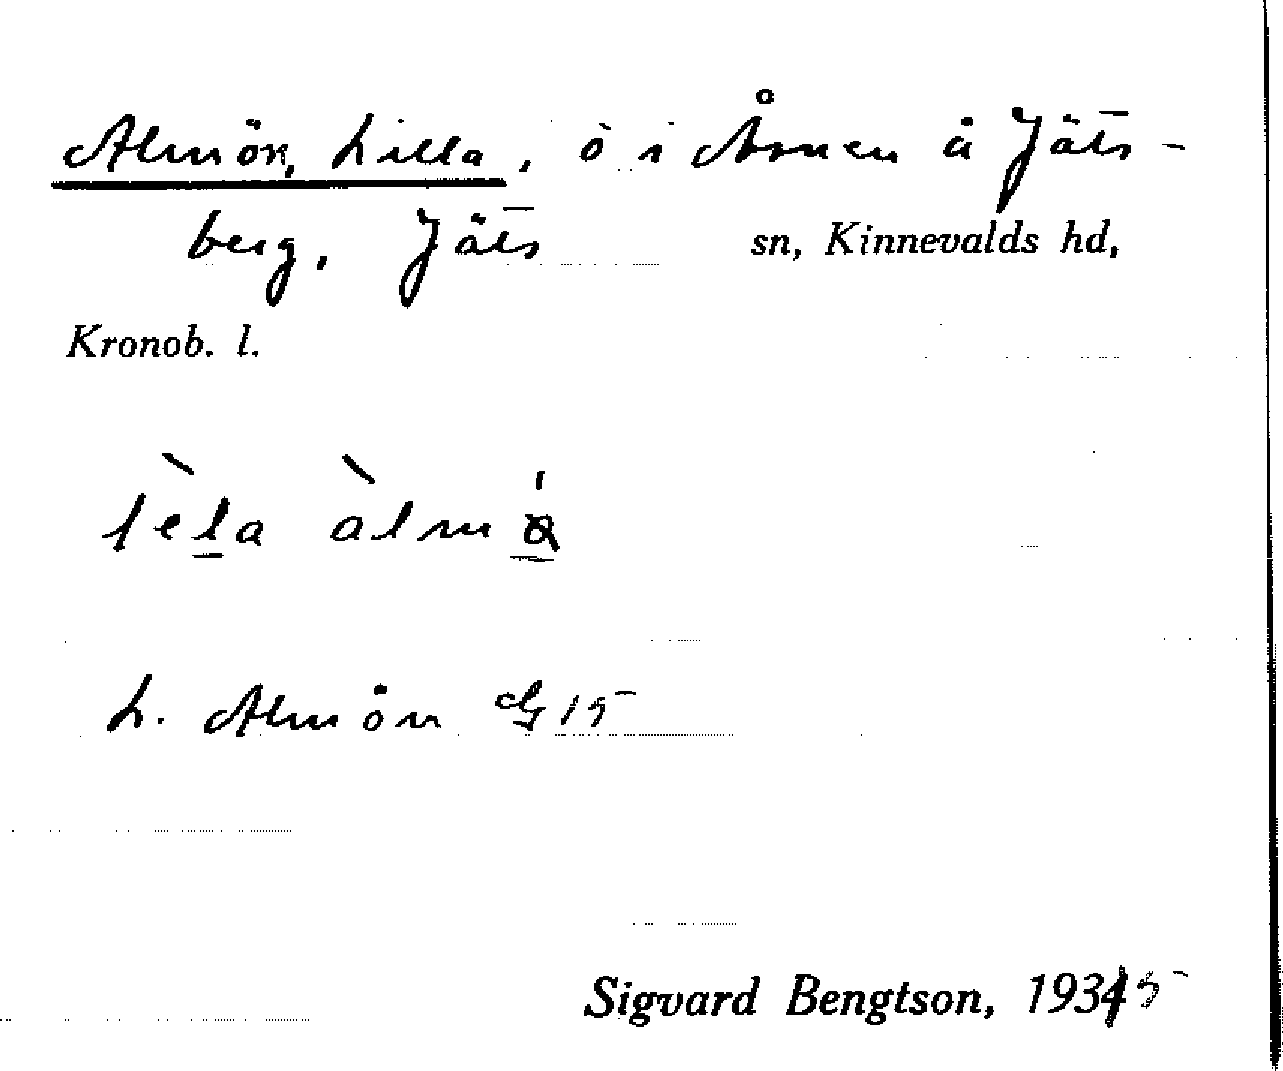 Almön, Lilla, ö i Åsnen å Jäts-
berg, Jäts sn, Kinnevalds hd,
Kronob. l.
lèla àlmö́
L. Almön G 15
Sigvard Bengtson, 1935